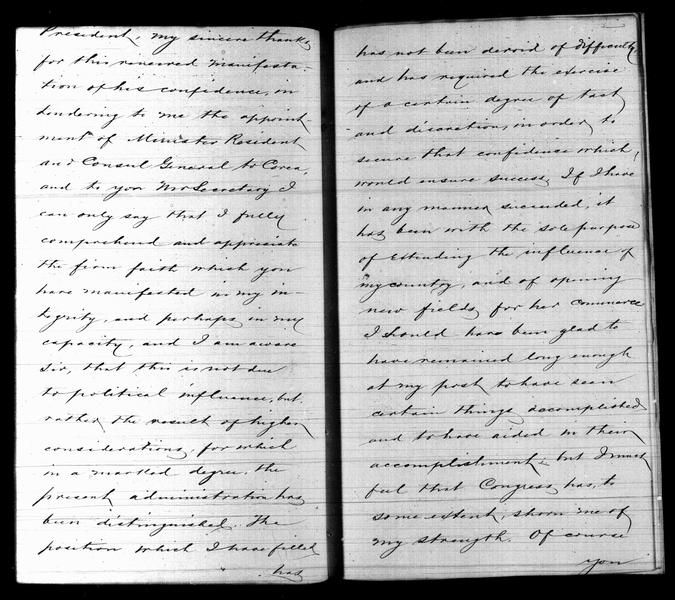 President, my sincere thanks
for this renewed manifesta-
tion of his confidence, in
tendering to me the appoint-
ment of Minister Resident
and Consul General to Corea,
and to you Mr Secretary I
can only say that I fully
comprehend and appreciate
the firm faith which you
have manifested in my in-
tegrity, and perhaps in my
capacity, and I am aware
Sir, that this is not due
to political influence, but
rather the result of higher
considerations, for which
in a marked degree, the
present administration has
been distinguished. The
position which I have filled
has
has not been devoid of difficulty
and has required the exercise
of a certain degree of tact
and discretion, in order to
secure that confidence which
would ensure success. If I have
in any manner succeeded, it
has been with the sole purpose
of extending the influence of
my country, and of opening
new fields for her commerce
I should have been glad to
have remained long enough
at my post, to have seen
certain things accomplished
and to have aided in their
accomplishment, but I must
feel that Congress has, to
some extent, shorn me of
my strength. Of course
you